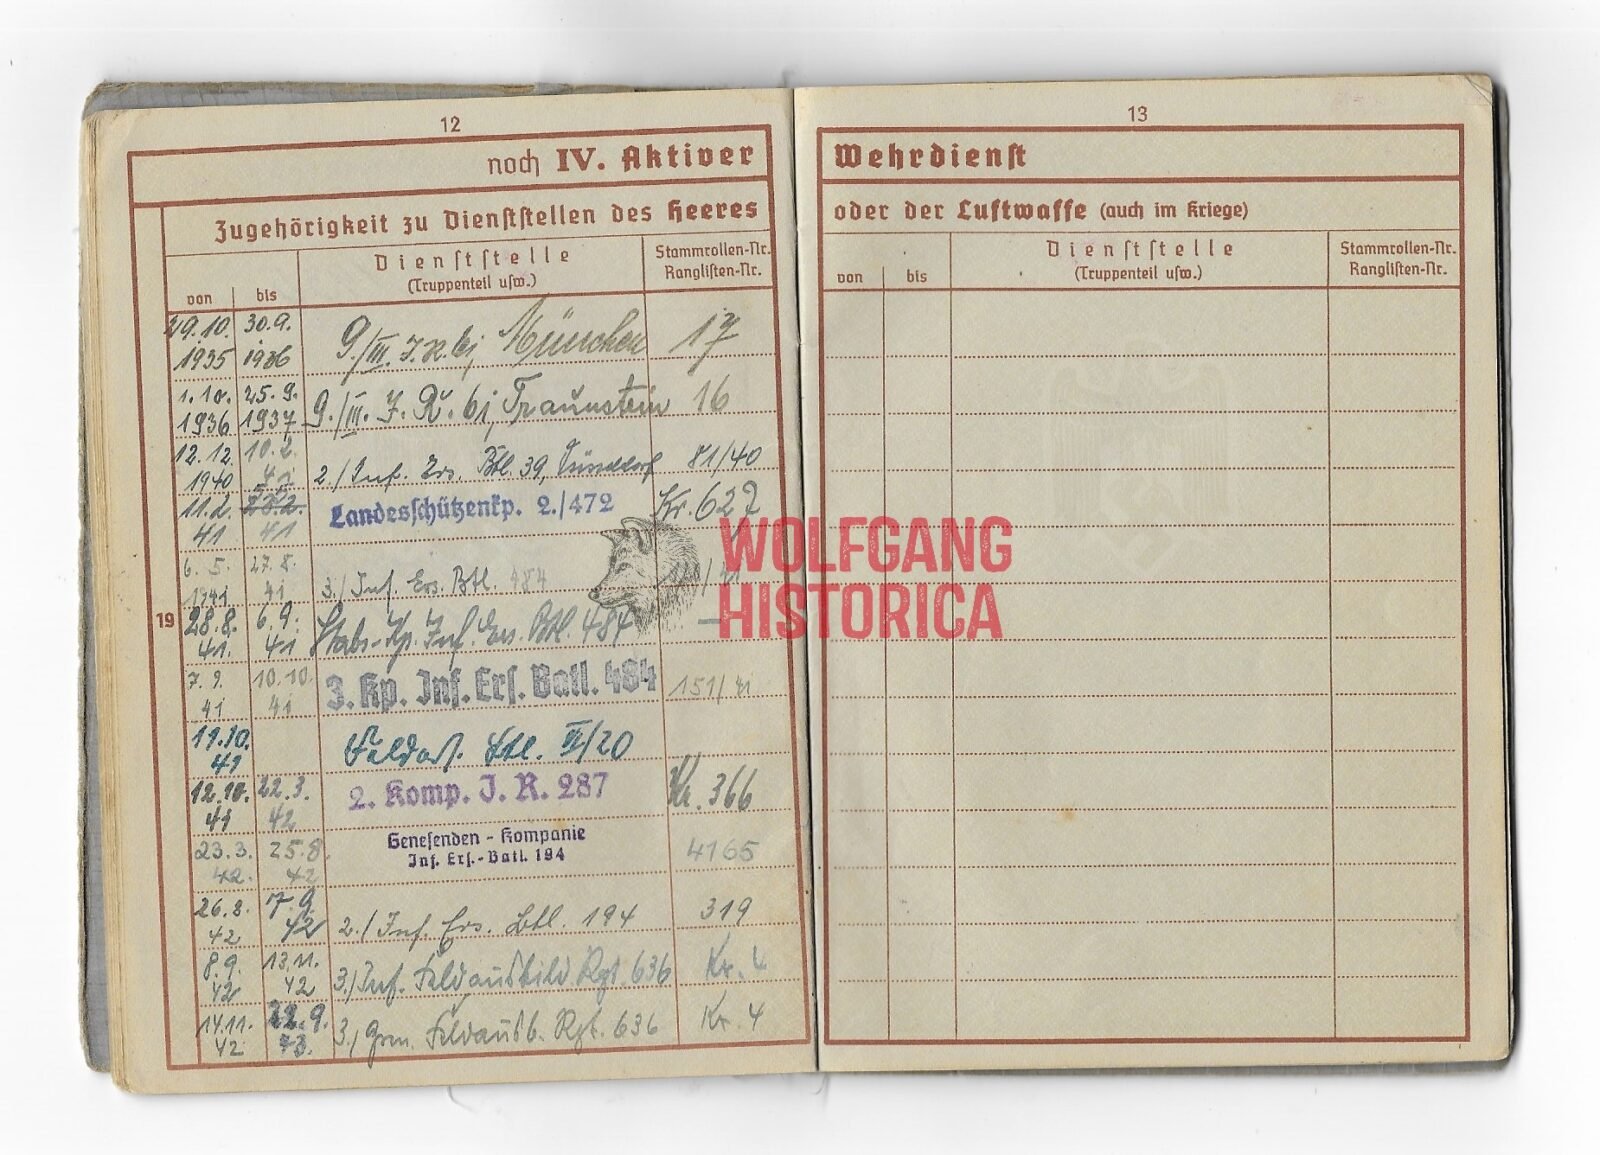 12
noch IV. Aktiver
Zugehörigkeit zu Dienststellen des Heeres
von
bis
Dienststelle
(Truppenteil usw.)
Stammrollen-Nr.
Ranglisten-Nr.
29.10. 1935 30.9. 1936 9./III. J.R. bj, München 17
1.10. 1936 25.9. 1937 9./III. J. R. bj, Traunstein 16
12.12. 1940 10.2. 41 2./Inf. Ers. Btl. 39, 81/40
11.2. 41 41 Landesschützenkp. 2./472 Kr. 627
6. 5. 1941 27. 8. 41 3./Inf. Ers. Btl. 484
19
28.8. 41. 6.9. 41 Stabs-Kp. Inf. Ers. Btl. 484 –
7. 9. 41 10.10. 41 3. Kp. Inf. Ers. Batl. 484 151/41
11.10. 41 Btl. VI/20
12.10. 41 22.3. 42 2. Komp. J. R. 287 Kr. 366
23.3. 42. 25.8. 42 Genesenden - Kompanie
Inf. Ers.- Batl. 194 4165
26.8. 42 7.9. 42 2./Inf. Ers. Btl. 194 319
8.9. 42 13.11. 42 3./Inf. Feldausbild Rgt. 636 Kr. 4
14.11. 42 22.9. 43. 3./Gren. Feldausb. Rgt. 636 Kr. 4
13
Wehrdienst
oder der Luftwaffe (auch im Kriege)
von
bis
Dienststelle
(Truppenteil usw.)
Stammrollen-Nr.
Ranglisten-Nr.
WOLFGANG
HISTORICA